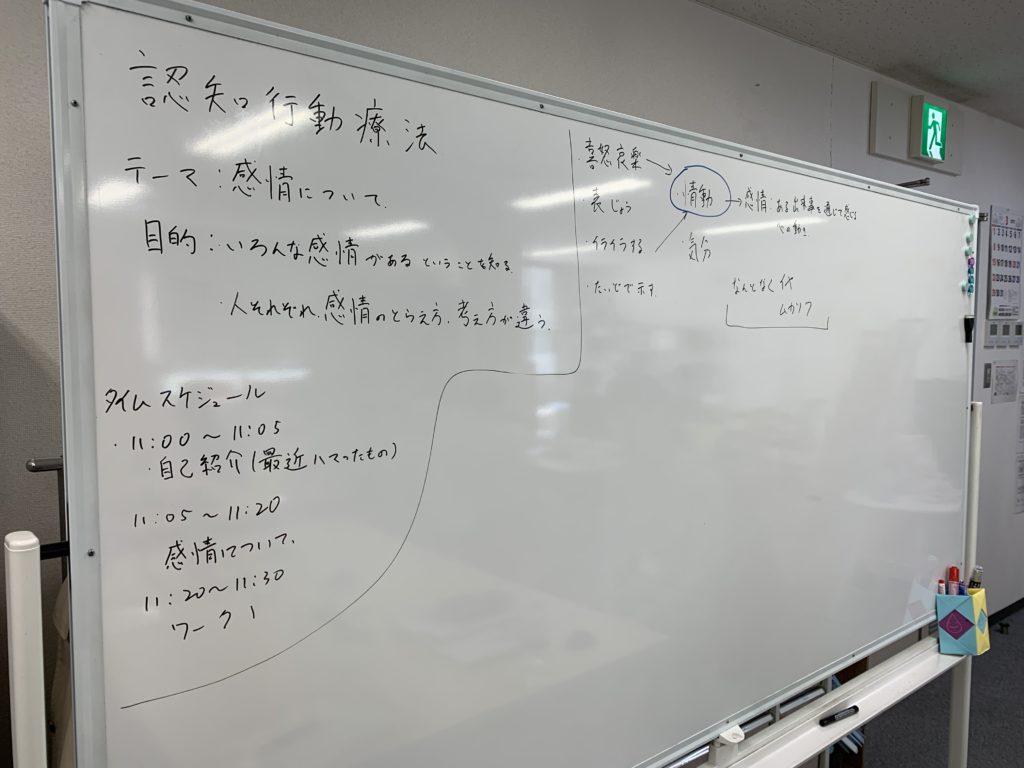 認知行動療法
テーマ：感情について.
目的：いろんな感情があるということを知る.
・人それぞれ、感情のとらえ方、考え方が違う.
タイムスケジュール
・11:00～11:05
・自己紹介(最近ハマったもの)
11:05～11:20
感情について、
11:20～11:30
ワーク1
・喜怒哀楽
・表じょう
・イライラする
・たいどで示す.
・情動
・気分
感情：ある出来事を通じて感じる
心の動き
なんとなく
ムカつく